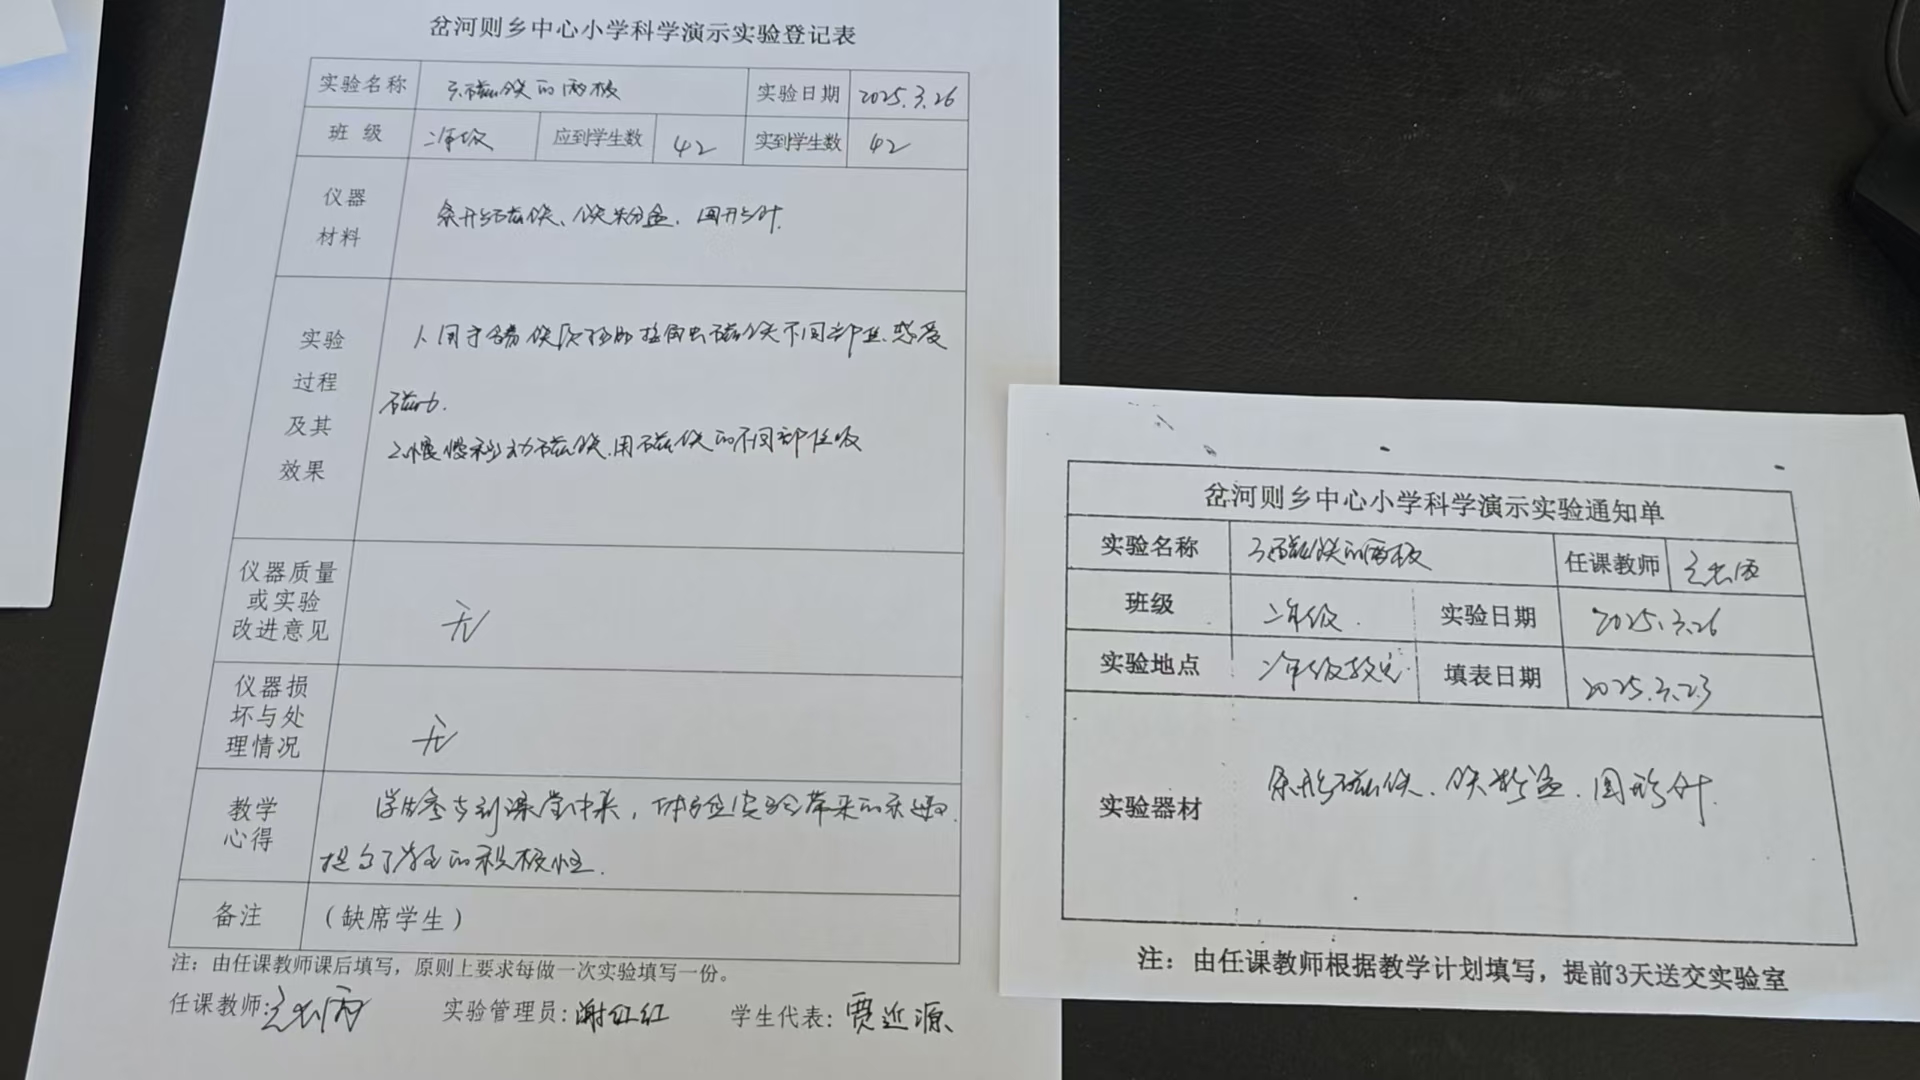 岔河则乡中心小学科学演示实验登记表
实验名称 3.磁铁的两极 实验日期 2025.3.26
班级 二年级 应到学生数 42 实到学生数 42
仪器
材料
条形磁铁、铁粉盒、回形针.
实验
过程
及其
效果
1、用手 磁铁不同部位.感受
磁力.
2.慢慢移动磁铁.用磁铁的不同部位吸
仪器质量
或实验
改进意见
无
仪器损
坏与处
理情况
无
教学
心得
学生参与到课堂中来,体验实验带来的乐趣.
提高了学生的积极性.
备注 (缺席学生)
注:由任课教师课后填写,原则上要求每做一次实验填写一份。
任课教师: 实验管理员:谢红红 学生代表:贾近源
岔河则乡中心小学科学演示实验通知单
实验名称 3.磁铁的两极 任课教师
班级 二年级. 实验日期 2025.3.26
实验地点 二年级教室 填表日期 2025.3.23
实验器材 条形磁铁、铁粉盒.回形针.
注:由任课教师根据教学计划填写,提前3天送交实验室